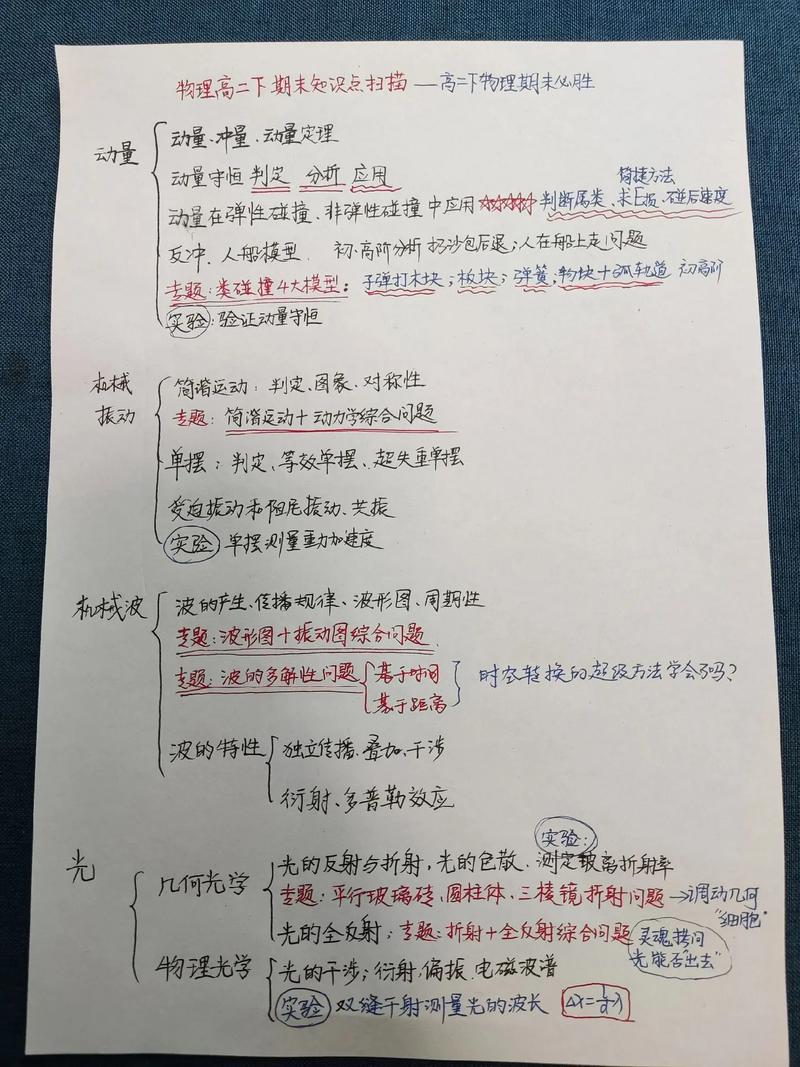 物理高二下期末知识点扫描——高二下物理期末必胜
动量
动量、冲量、动量定理
动量守恒 判定 分析 应用
简捷方法
动量在弹性碰撞、非弹性碰撞中应用 ☆☆☆☆ 判断属类、求E损、碰后速度
反冲、人船模型. 初.高阶分析 扔沙包后退;人在船上走问题
专题:类碰撞4大模型:子弹打木块;板块;弹簧;物块+弧轨道 初高阶
实验:验证动量守恒
机械振动
简谐运动:判定、图象、对称性
专题:简谐运动+动力学综合问题
单摆:判定、等效单摆、超失重单摆
受迫振动和阻尼振动、共振
实验 单摆测量重力加速度
机械波
波的产生、传播规律、波形图、周期性
专题:波形图+振动图综合问题
专题:波的多解性问题
基于时间
基于距离
时空转换的超级方法学会了吗?
波的特性
独立传播、叠加、干涉
衍射、多普勒效应
光
实验:
几何光学
光的反射与折射,光的色散.测定玻离折射率
专题:平行玻璃砖、圆柱体、三棱镜折射问题→调动几何"细胞"
光的全反射;专题:折射+全反射综合问题
灵魂拷问
光能否"出去"
物理光学
光的干涉;衍射,偏振.电磁波谱
实验 双缝干射测量光的波长 Δx=l/d λ